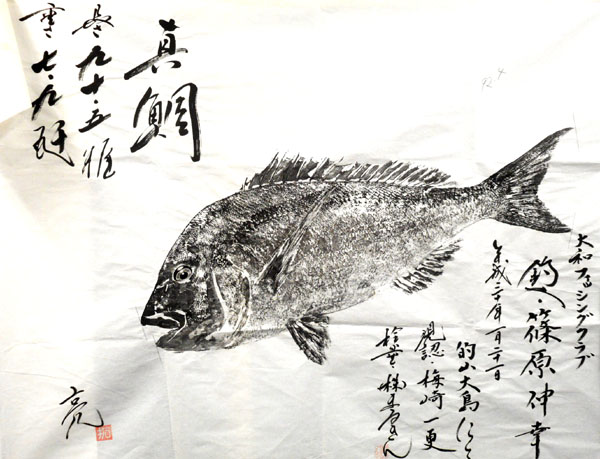 真鯛
長さ九十・五糎
重さ七・九瓩
大和フィッシングクラブ
釣人・篠原伸幸
平成二十年一月二十一日
的山大島にて
現認・梅崎一更
亮